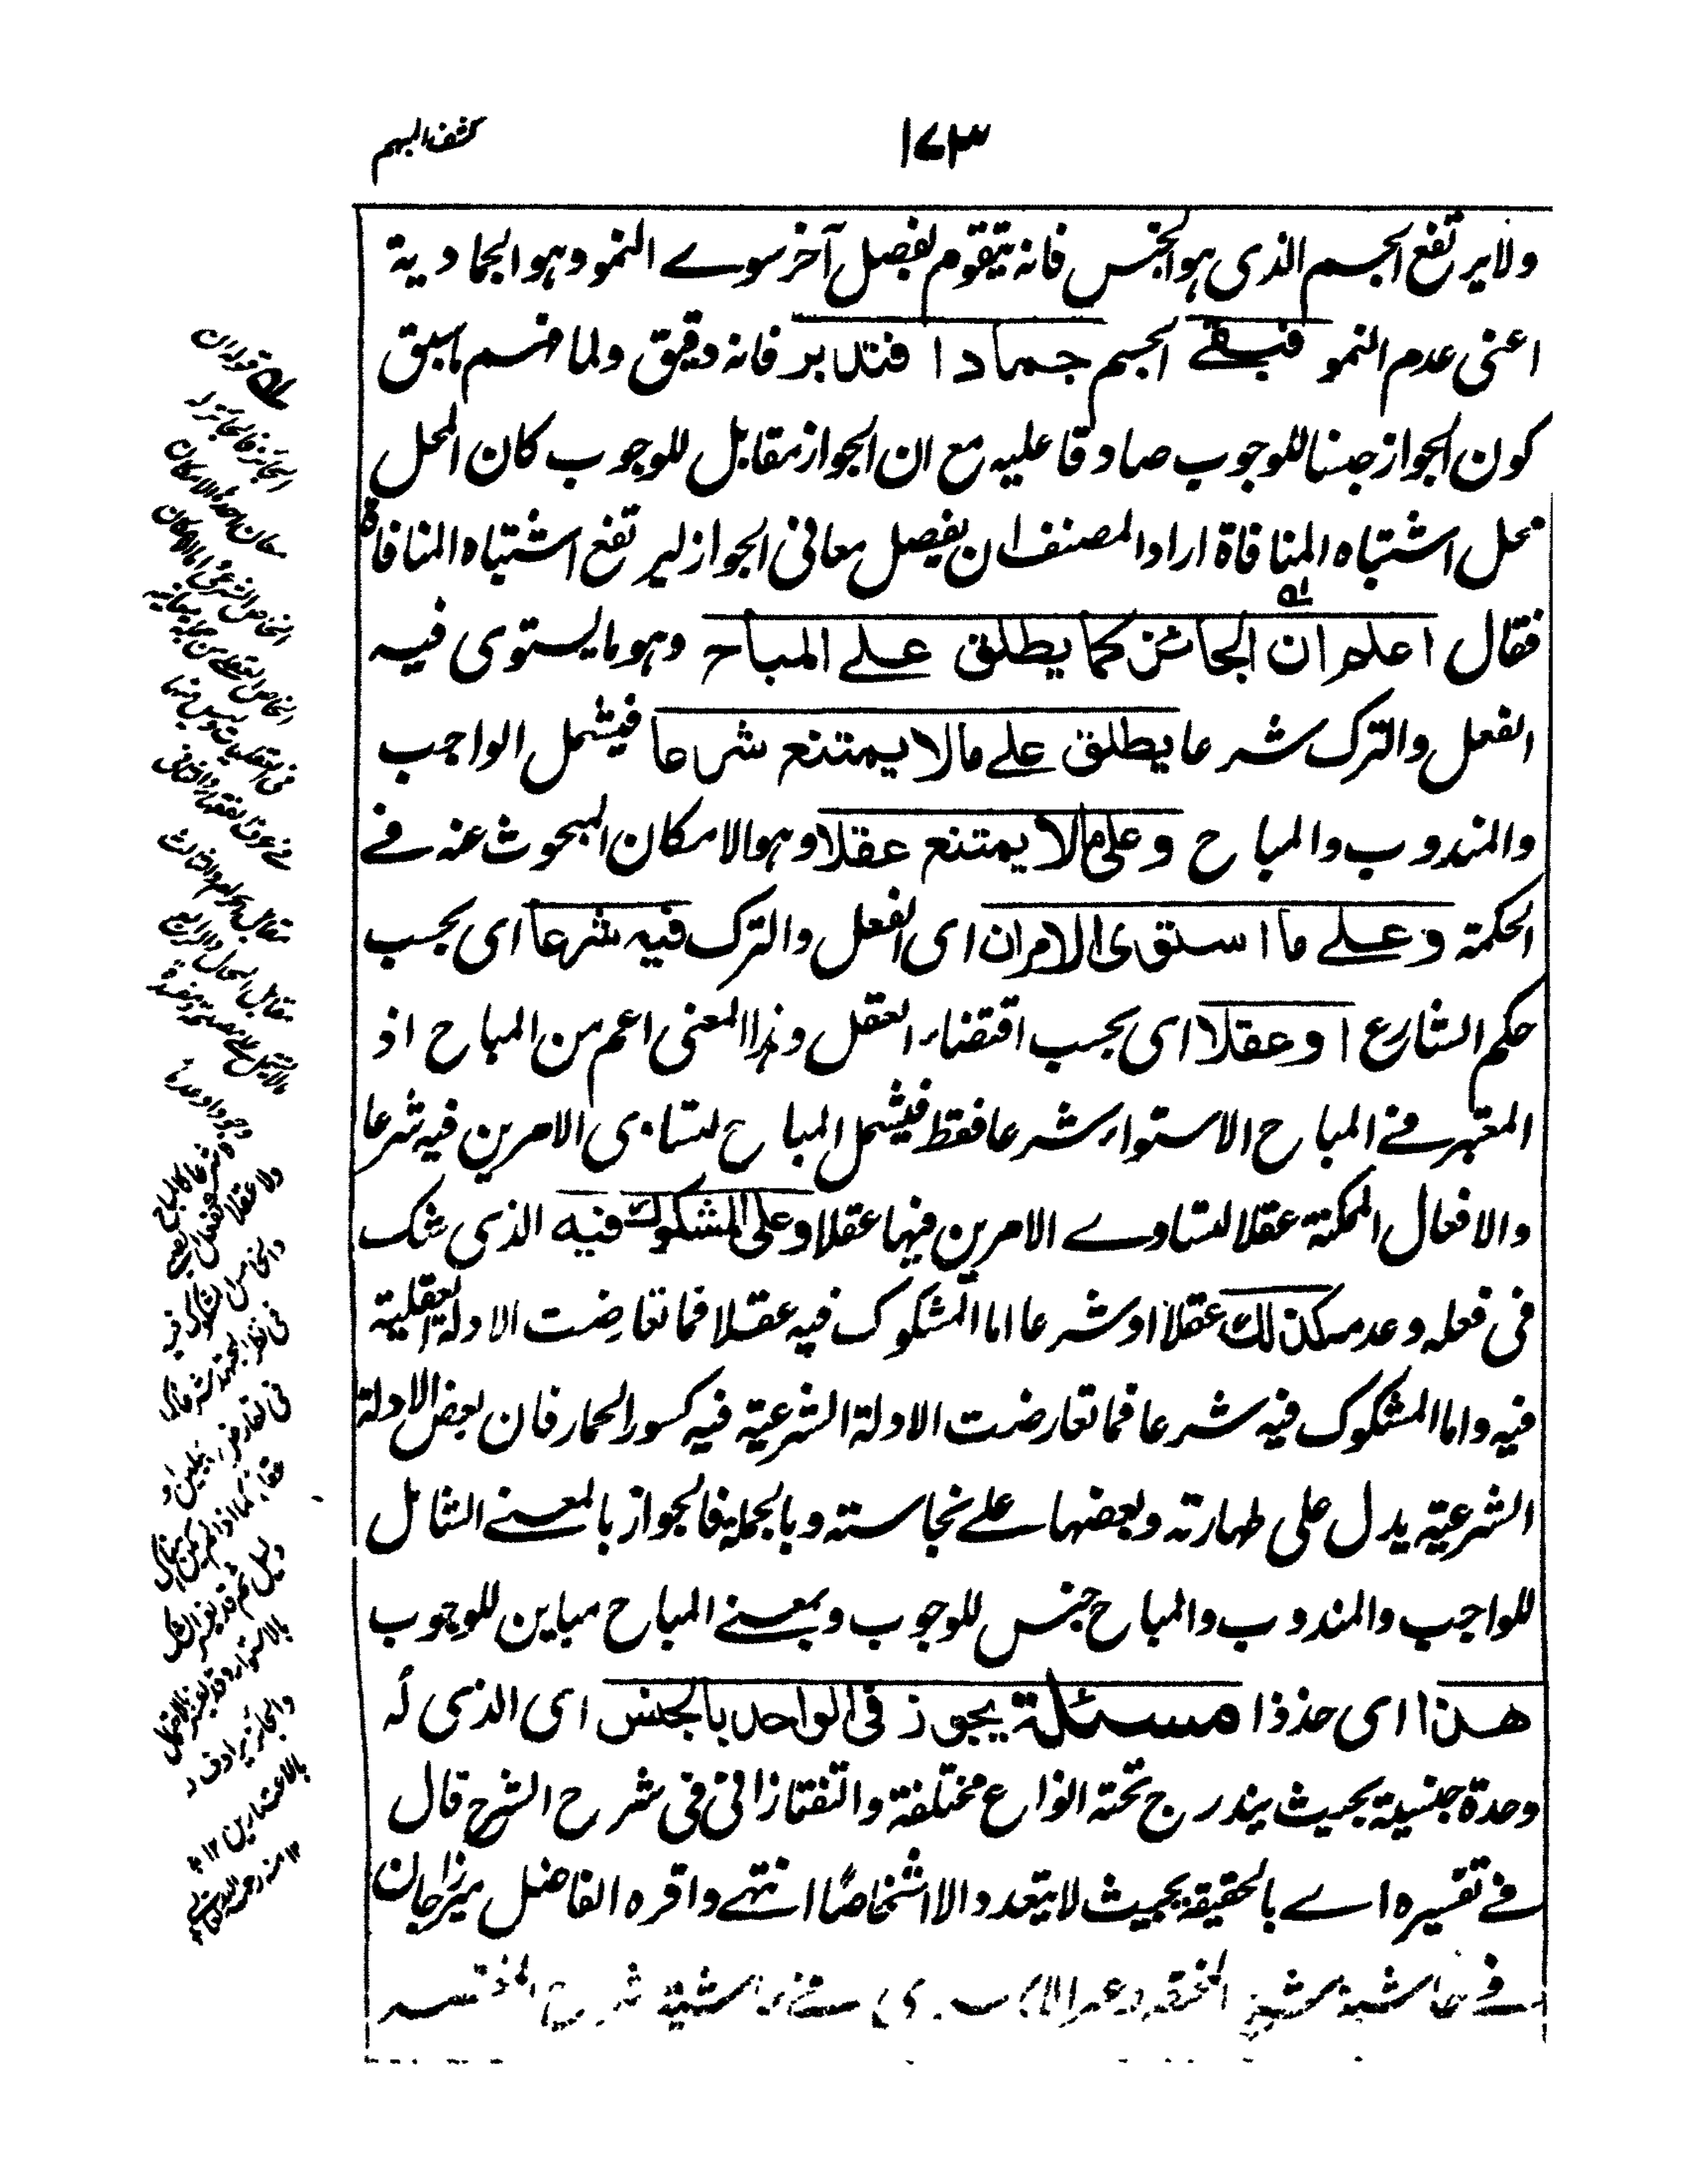 ١٧٣
كشف المبهم
ولا يرتفع الجسم الذى هو الجنس فانه يتقوم بفصل آخر سوے النمو وهو الجمادية
اعنى عدم النمو فيبقے الجسم جمادا فتدبر فانه دقيق ولما فهم مما سبق
كون الجواز جنسا للوجوب صادقا عليه مع ان الجواز مقابل للوجوب كان المحل
محل اشتباه المنافاة اراد المصنف ان يفصل معانى الجواز ليرتفع اشتباه المنافاة
فقال اعلم ان الجائز كما يطلق علے المباح وهو ما يستوى فيه
الفعل والترك شرعا يطلق علے ما لا يمتنع شرعا فيشمل الواجب
والمندوب والمباح وعلى ما لا يمتنع عقلا وهو الامكان المبحوث عنه فے
الحكمة وعلے ما استوى الامران اى الفعل والترك فيه شرعا اى بحسب
حكم الشارع او عقلا اى بحسب اقتضاء العقل وهذا المعنى اعم من المباح اذ
المعتبر فے المباح الاستواء شرعا فقط فيشمل المباح لتساوى الامرين فيه شرعا
والافعال الممكنة عقلا لتساوے الامرين فيها عقلا وعلى المشكوك فيه الذى شك
فى فعله وعدمه كذلك عقلا او شرعا اما المشكوك فيه عقلا فما تعارضت الادلة العقلية
فيه واما المشكوك فيه شرعا فما تعارضت الادلة الشرعية فيه كسور الحمار فان بعض الادلة
الشرعية يدل على طهارته وبعضها علے نجاسته وبالجملة فالجواز بالمعنے الشامل
للواجب والمندوب والمباح جنس للوجوب وبمعنے المباح مباين للوجوب
هذا اى خذ ذا مسئلة يجوز فى الواحد بالجنس اى الذى له
وحدة جنسية بحيث يندرج تحته انواع مختلفة والتفتازانى فى شرح الشرح قال
فے تفسيره اے بالحقيقة بحيث لا يتعدد الا اشخاصا انتهے واقره الفاضل ميرزاجان
فے حاشية
قوله ان
الجائز فالجائز له
معان احدها الامكان
الخاص الشرعى